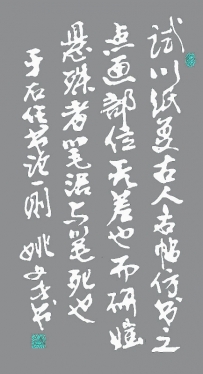 试以纸复古人名帖仿书之
点画部位无差也而妍媸
悬殊者笔活与笔死也
于右任书论一则 姚书